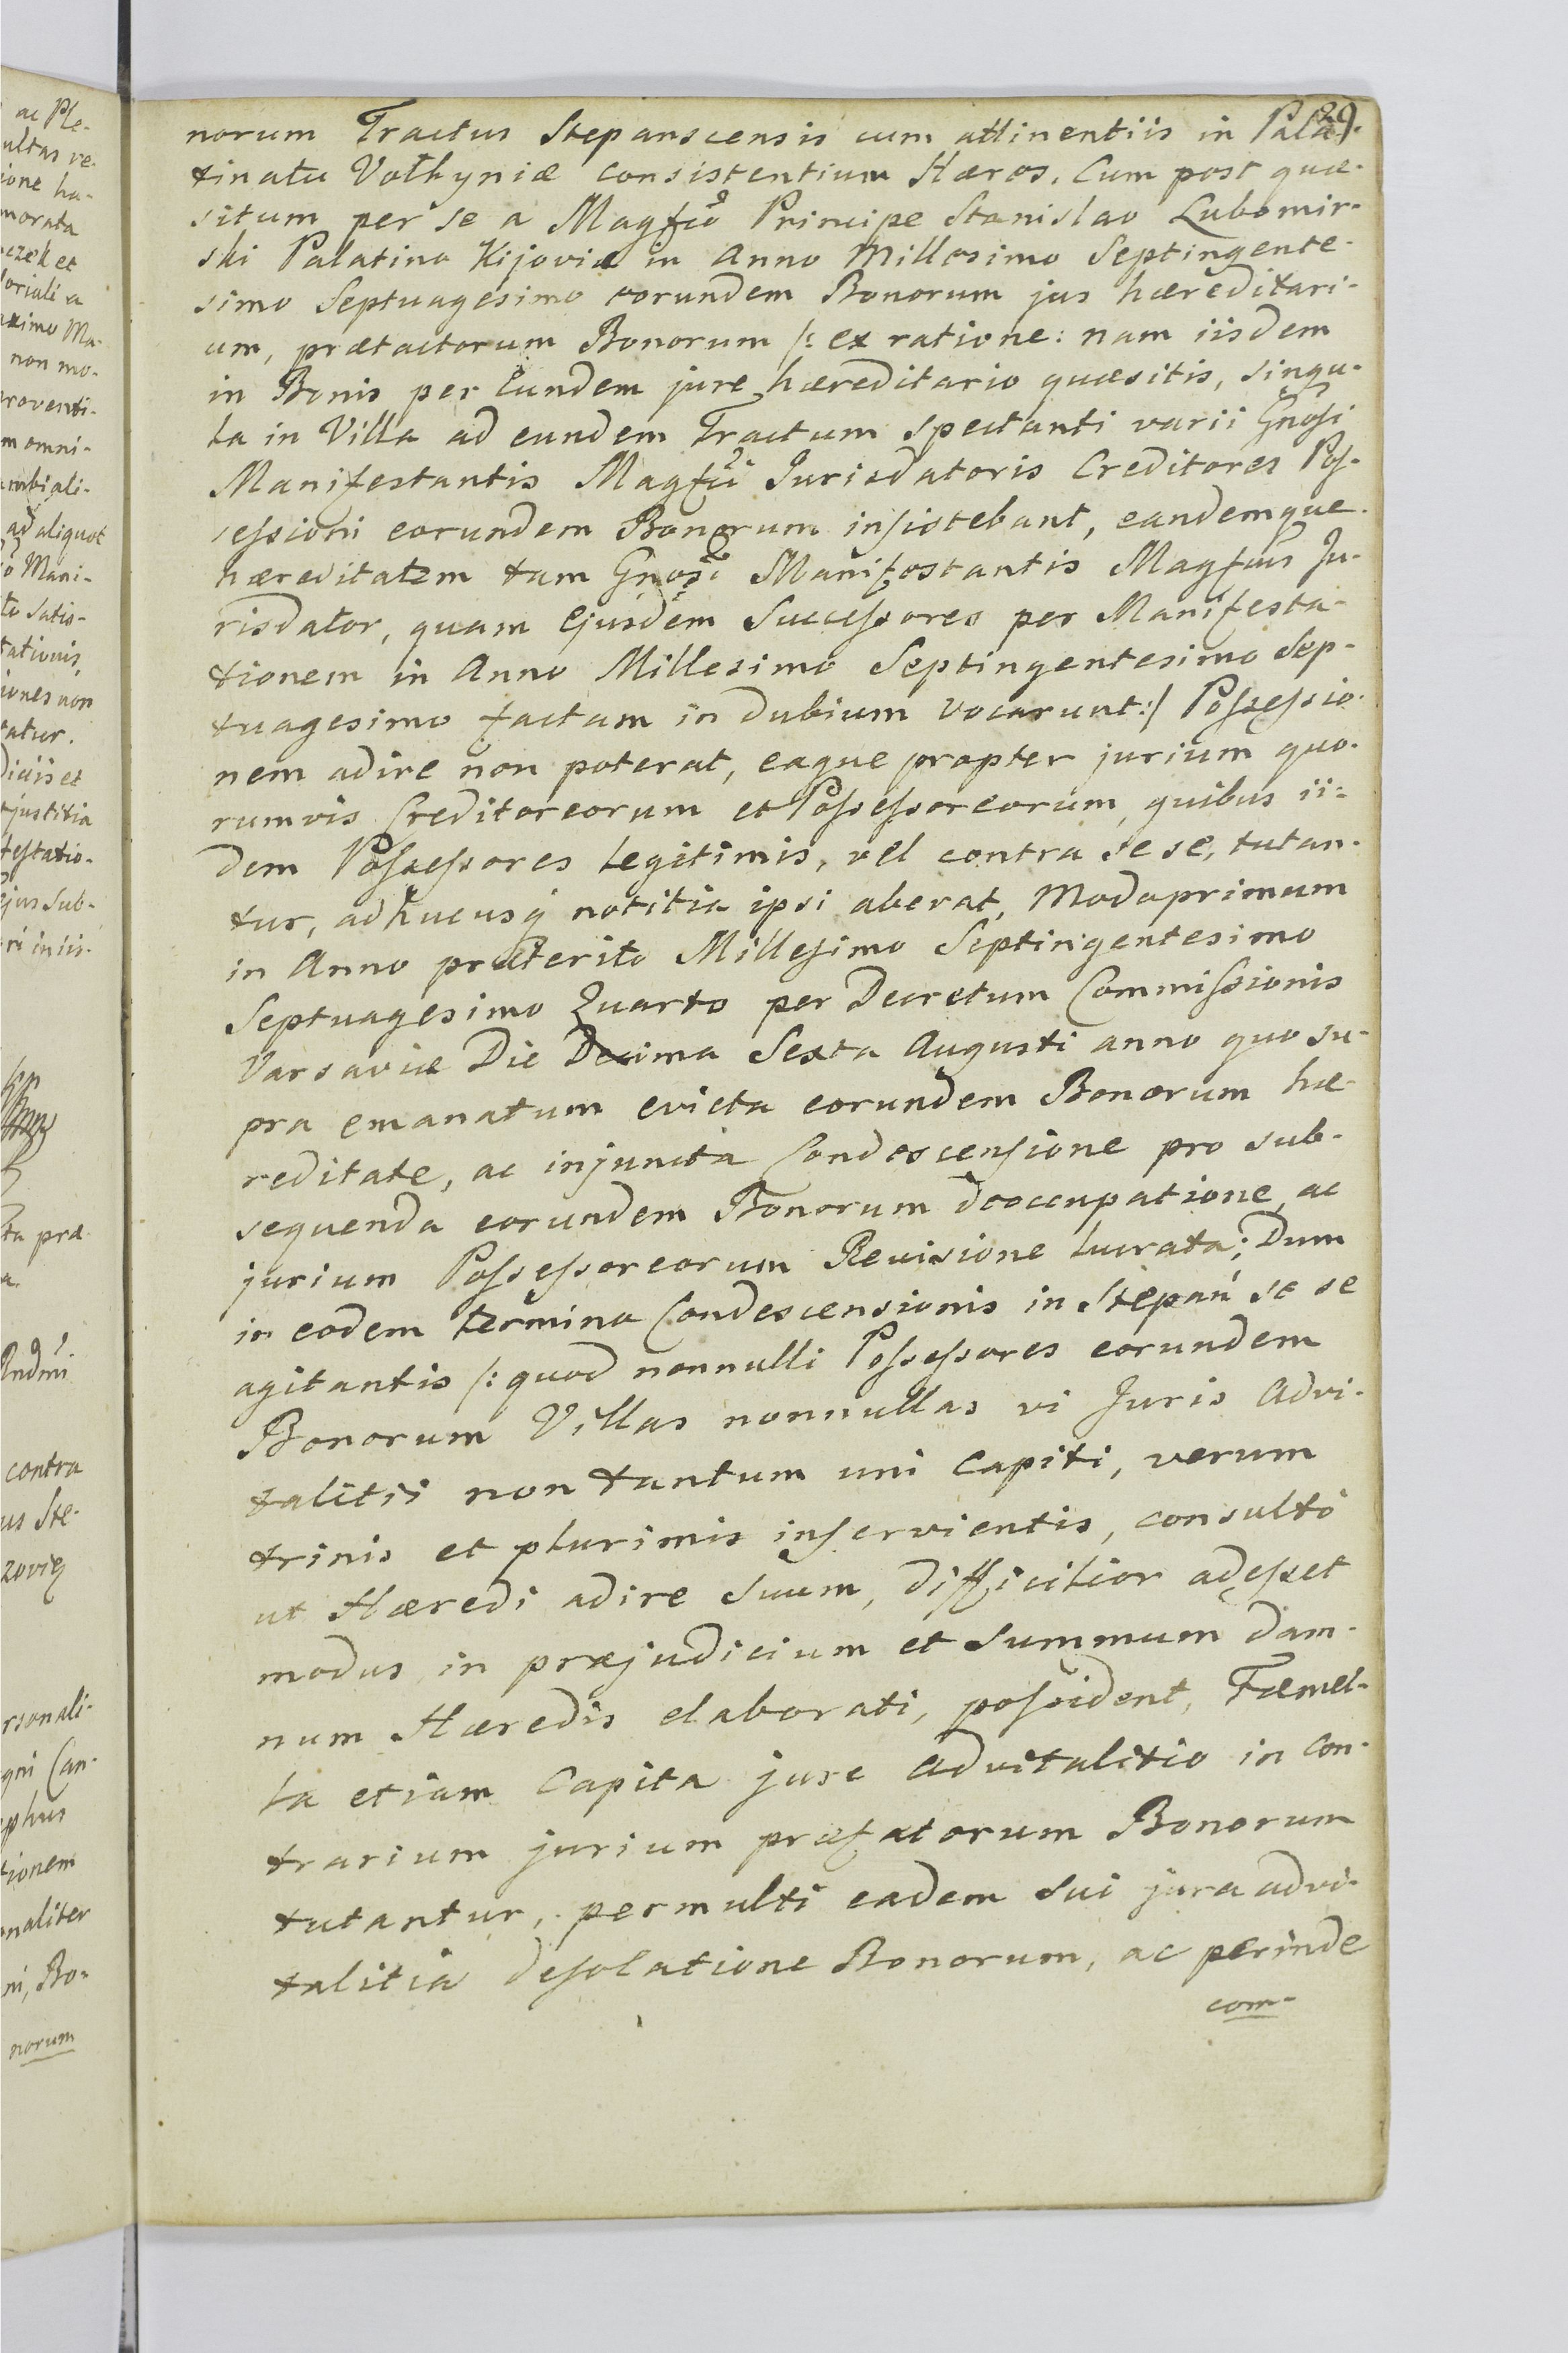 29
norum Tractus Stepanscensis cum attinentiis in Pala-
tinatu Volhyniæ consistentium Hæros. Cum post quæ-
situm per se a Magfco Principe Stanislao Lubomir-
ski Palatino Kijoviæ in Anno Millesimo Septingente-
simo Septuagesimo eorundem Bonorum jus hæreditari-
um, prætactorum Bonorum /: ex ratione: nam iisdem
in Bonis per Eundem jure hæreditario quæsitis, singu-
la in Villa ad eundem Tractum spectanti varii Gnosi
Manifestantis Magfci Jurisdatoris Creditores Pos-
sessioni eorundem Bonorum insistebant, eandemque
hæreditatem tam Gnosi Manifestantis Magfcus Ju-
risdator, quam Ejusdem Successores per Manifesta-
tionem in Anno Millesimo Septingentesimo Sep-
tuagesimo factam in dubium vocarunt:/ Possessio-
nem adire non poterat, eaque propter jurium quo-
rumvis Creditoreorum et Possessoreorum, quibus ii-
dem Possessores legitimis, vel contra se se, tutan-
tur, adhucusq notitia ipsi aberat, Modoprimum
in Anno præterito Millesimo Septingentesimo
Septuagesimo Quarto per Decretum Commissionis
Varsaviæ Die Decima Sexta Augusti anno quo su-
pra emanatum evicta eorundem Bonorum hæ-
reditate, ac injuncta Condescensione pro sub-
sequenda eorundem Bonorum deoccupatione, ac
jurium Possessoreorum Revisione lucrata; Dum
in eodem termino Condescensionis in Stepań se se
agitantis /: quod nonnulli Possessores eorundem
Bonorum Villas nonnullas vi Juris Advi-
talitii non tantum uni Capiti, verum
trinis et plurimis inservientis, consulto
ut Hæredi adire Suum, difficilior adesset
modus in præjudicium et Summum dam-
num Hæredis elaborati, possident, Fæmel-
la etiam Capita jure Advitalitio in con-
trarium jurium præfatorum Bonorum
tutantur, permulti eadem sui jura advi-
talitia desolatione Bonorum, ac perinde
com-
ac Ple-
ultas re-
ione ha-
morata
czek et
loriali a
ximo Ma-
non mo-
roventi-
m omni-
ambiali-
ad aliquot
Mani-
to Satis-
tationis,
iones non
atur.
diciis et
justitia
festatio-
ejus sub-
ri in iis-
ta præ
a.
Rndmi
contra
us Ste-
zovię
rsonali-
gni Can-
phus
ionem
naliter
ni, Bo-
norum